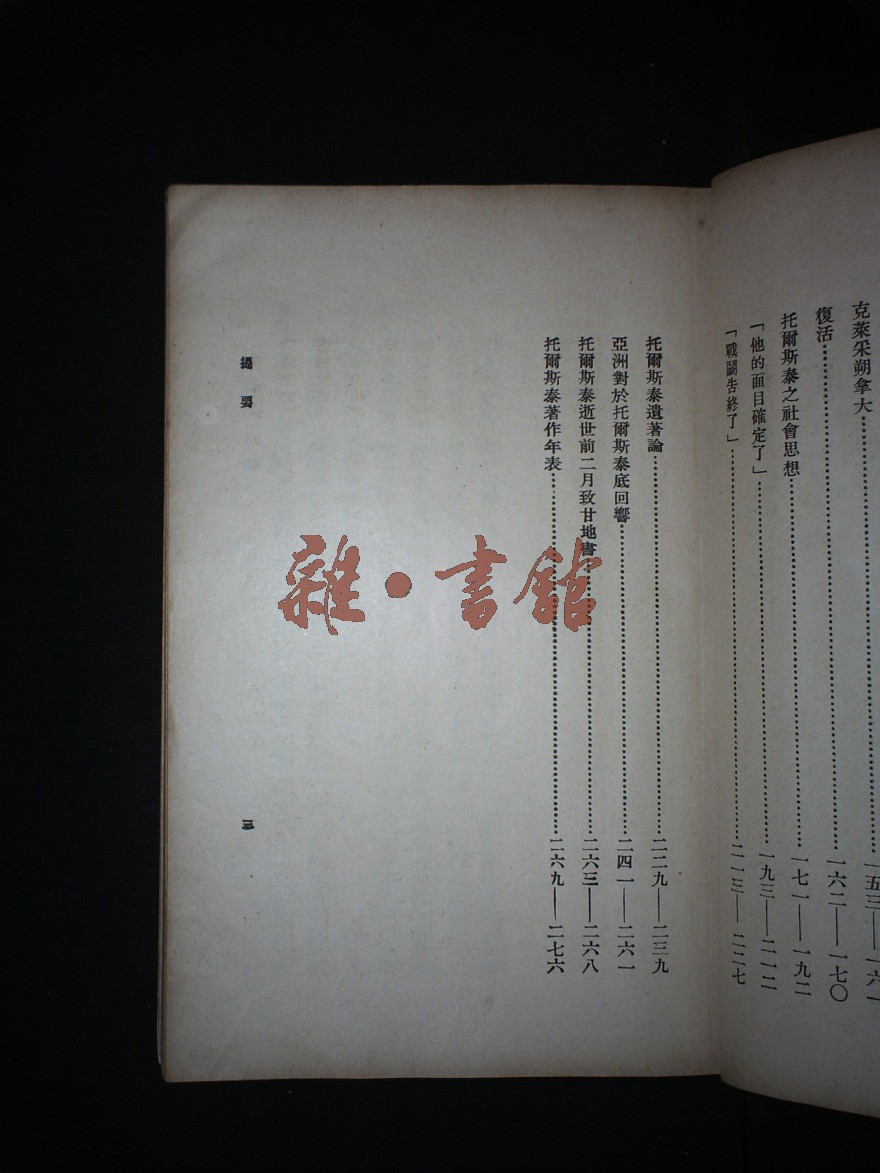 克萊采朔拿大……一五三——一六一
復活……一六二——一七〇
托爾斯泰之社會思想……一七一——一九二
「他的面目確定了」……一九三——二一二
「戰鬪告終了」……二一三——二二七
托爾斯泰遺著論……二二九——二三九
亞洲對於托爾斯泰底回響……二四一——二六一
托爾斯泰逝世前二月致甘地書……二六三——二六八
托爾斯泰著作年表……二六九——二七六
提要
三
雜·書館